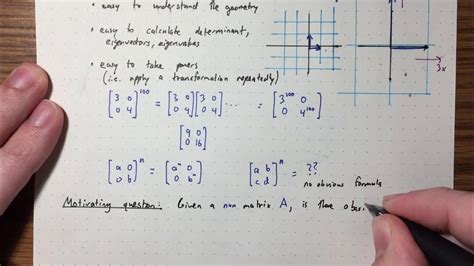 • easy to understand the geometry
• easy to calculate determinant,
eigenvectors, eigenvalues
• easy to take powers
(i.e. apply a transformation repeatedly)
[3 0; 0 4]^100 = [3 0; 0 4][3 0; 0 4] ... = [3^100 0; 0 4^100]
[9 0; 0 16]
[a 0; 0 b]^n = [a^n 0; 0 b^n] [a b; c d]^n = ??
no obvious formula
Motivating question: Given a nxn matrix A, is there a
3x